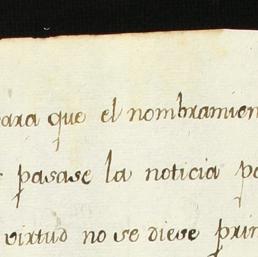 para que el nombramien
pasase la noticia p
virtud no se diese prin